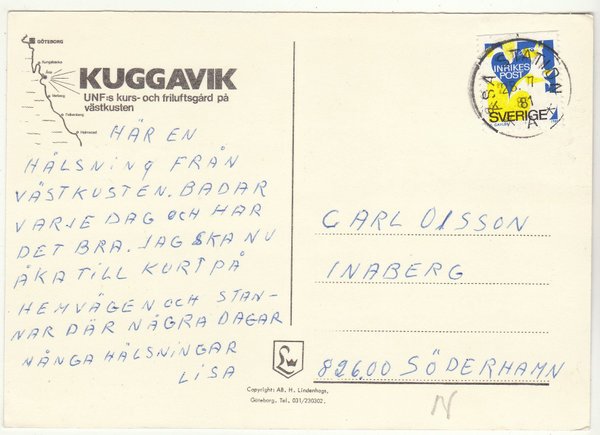 GÖTEBORG
Kungsbacka
Åsa
Varberg
Falkenberg
Halmstad
KUGGAVIK
UNF:s kurs- och friluftsgård på
västkusten
HÄR EN
HÄLSNING FRÅN
VÄSTKUSTEN. BADAR
VARJE DAG OCH HAR
DET BRA. JAG SKA NU
ÅKA TILL KURT PÅ
HEMVÄGEN OCH STAN-
NAR DÄR NÅGRA DAGAR
MÅNGA HÄLSNINGAR
LISA
INRIKES
POST
SVERIGE
81
CARL OLSSON
INABERG
82600 SÖDERHAMN
Copyright: AB. H. Lindenhags,
Göteborg. Tel. 031/230302.
N